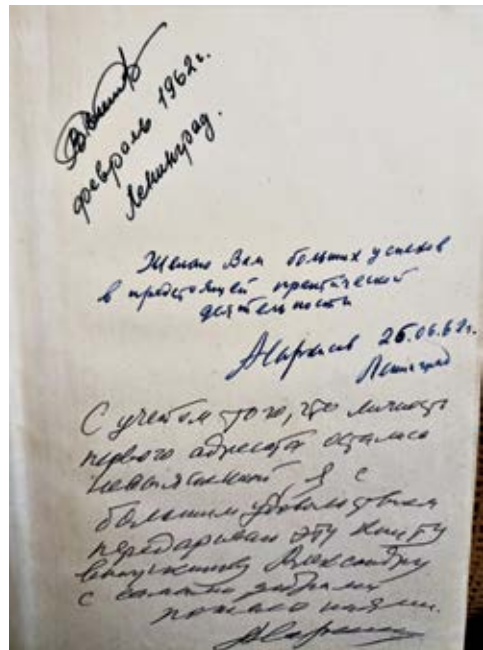 февраль 1962г.
Ленинград.
Желаю Вам больших успехов
в предстоящей практической
деятельности
26.06.62г.
Ленинград
С учетом того, что личность
первого адресата осталась
невыясненной, я с
большим удовольствием
передариваю эту книгу
Александру
с самыми добрыми
пожеланиями.